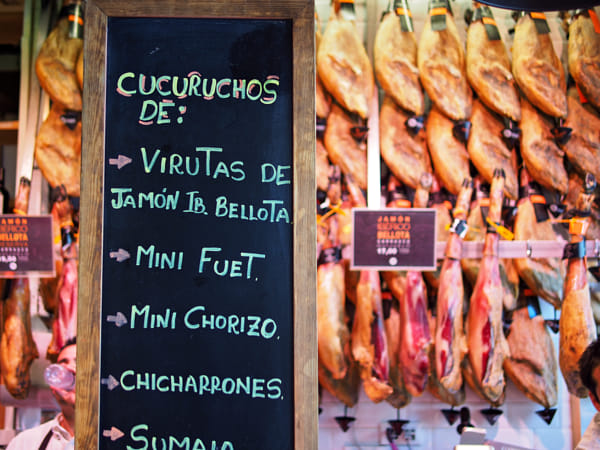 CUCURUCHOS
DE:
→ VIRUTAS DE
JAMÓN IB. BELLOTA.
→ MINI FUET.
→ MINI CHORIZO.
→ CHICHARRONES.
→ SUMAIA
JAMÓN
IBÉRICO
BELLOTA
JAMÓN
IBÉRICO
BELLOTA